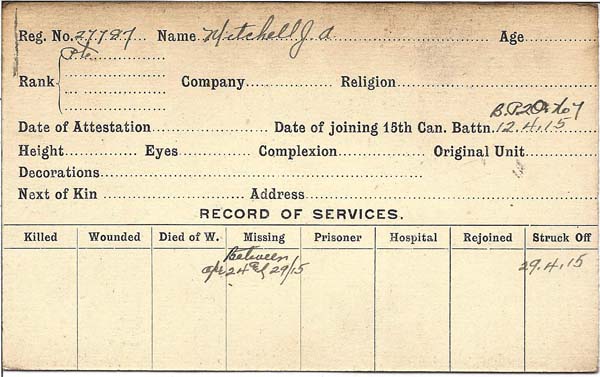 Reg. No. 27787 Name Mitchell J. A. Age
Pte.
Rank Company Religion
B.P.2 O. 267
Date of Attestation Date of joining 15th Can. Battn. 12.4.15
Height Eyes Complexion Original Unit
Decorations
Next of Kin Address
RECORD OF SERVICES.
Killed Wounded Died of W. Missing Prisoner Hospital Rejoined Struck Off
Between
24 29/15 29.4.15